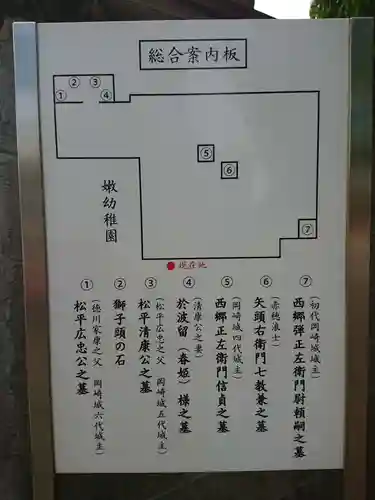 総合案内板
② ③
① ④
⑤
⑥
⑦
嫩幼稚園
現在地
① 松平広忠公之墓
(徳川家康之父 岡崎城六代城主)
② 獅子頭の石
③ 松平清康公之墓
(松平広忠之父 岡崎城五代城主)
④ 於波留(春姫)様之墓
(清康公之妻)
⑤ 西郷正左衛門信貞之墓
(岡崎城四代城主)
⑥ 矢頭右衛門七教兼之墓
(赤穂浪士)
⑦ 西郷弾正左衛門尉頼嗣之墓
(初代岡崎城城主)